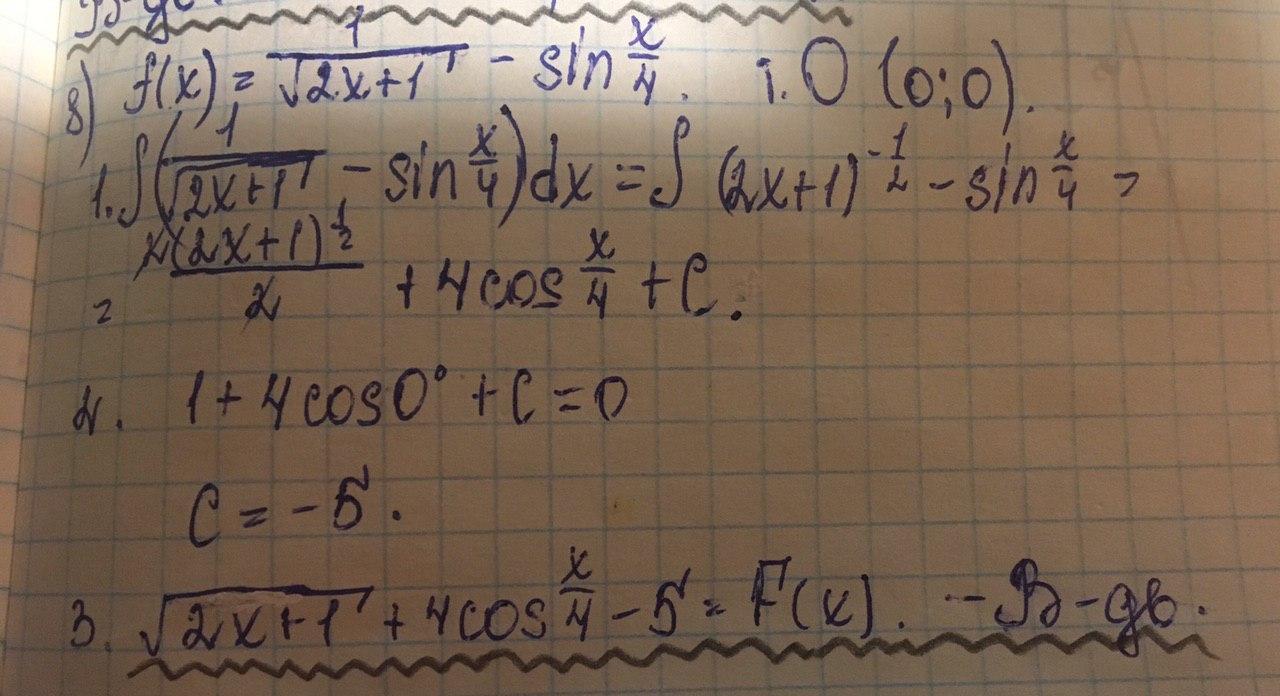 8) f(x) = 1/√(2x+1) - sin x/4. т. O (0;0).
1. ∫(1/√(2x+1) - sin x/4)dx = ∫ (2x+1)^(-1/2) - sin x/4 =
= 2(2x+1)^(1/2)/2 + 4cos x/4 + C.
2. 1 + 4cos0° + C = 0
C = -5.
3. √(2x+1) + 4cos x/4 - 5 = F(x). - В-дь.